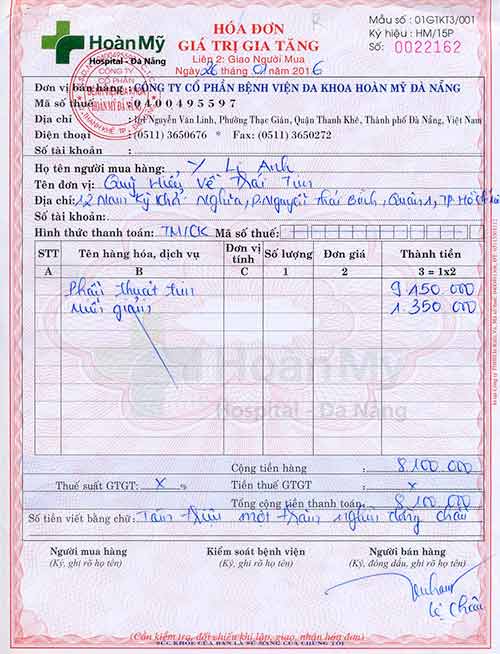 HÓA ĐƠN
GIÁ TRỊ GIA TĂNG
Liên 2: Giao Người Mua
Ngày 26 tháng 01 năm 2016
Mẫu số : 01GTKT3/001
Ký hiệu : HM/15P
Số: 0022162
Hoàn Mỹ
Hospital - Đà Nẵng
CÔNG TY
CỔ PHẦN
BỆNH VIỆN ĐA KHOA
HOÀN MỸ ĐÀ NẴNG
Đơn vị bán hàng : CÔNG TY CỔ PHẦN BỆNH VIỆN ĐA KHOA HOÀN MỸ ĐÀ NẴNG
Mã số thuế : 0400495597
Địa chỉ : 161 Nguyễn Văn Linh, Phường Thạc Gián, Quận Thanh Khê, Thành phố Đà Nẵng, Việt Nam
Điện thoại : (0511) 3650676 * Fax: (0511) 3650272
Số tài khoản :
Họ tên người mua hàng: Y Li Anh
Tên đơn vị: Quỹ Hiểu Về Trái Tim
Địa chỉ: 12 Nam Kỳ Khởi Nghĩa, P. Nguyễn Thái Bình, Quận 1, TP Hồ Chí
Số tài khoản:
Hình thức thanh toán: TM/CK Mã số thuế:
STT Tên hàng hóa, dịch vụ Đơn vị tính Số lượng Đơn giá Thành tiền
A B C 1 2 3 = 1x2
Phẫu thuật tim 9 150 000
Miễn giảm 1 350 000
Hoàn Mỹ
Hospital - Đà Nẵng
Cộng tiền hàng : 8 100 000
Thuế suất GTGT: x % Tiền thuế GTGT : x
Tổng cộng tiền thanh toán: 8 100 000
Số tiền viết bằng chữ: Tám triệu một trăm nghìn đồng chẵn
Người mua hàng Kiểm soát bệnh viện Người bán hàng
(Ký, ghi rõ họ tên) (Ký, ghi rõ họ tên) (Ký, đóng dấu, ghi rõ họ tên)
Lệ Châu
(Cần kiểm tra, đối chiếu khi lập, giao, nhận hóa đơn)
SỨC KHỎE CỦA BẠN LÀ SỨ MẠNG CỦA CHÚNG TÔI